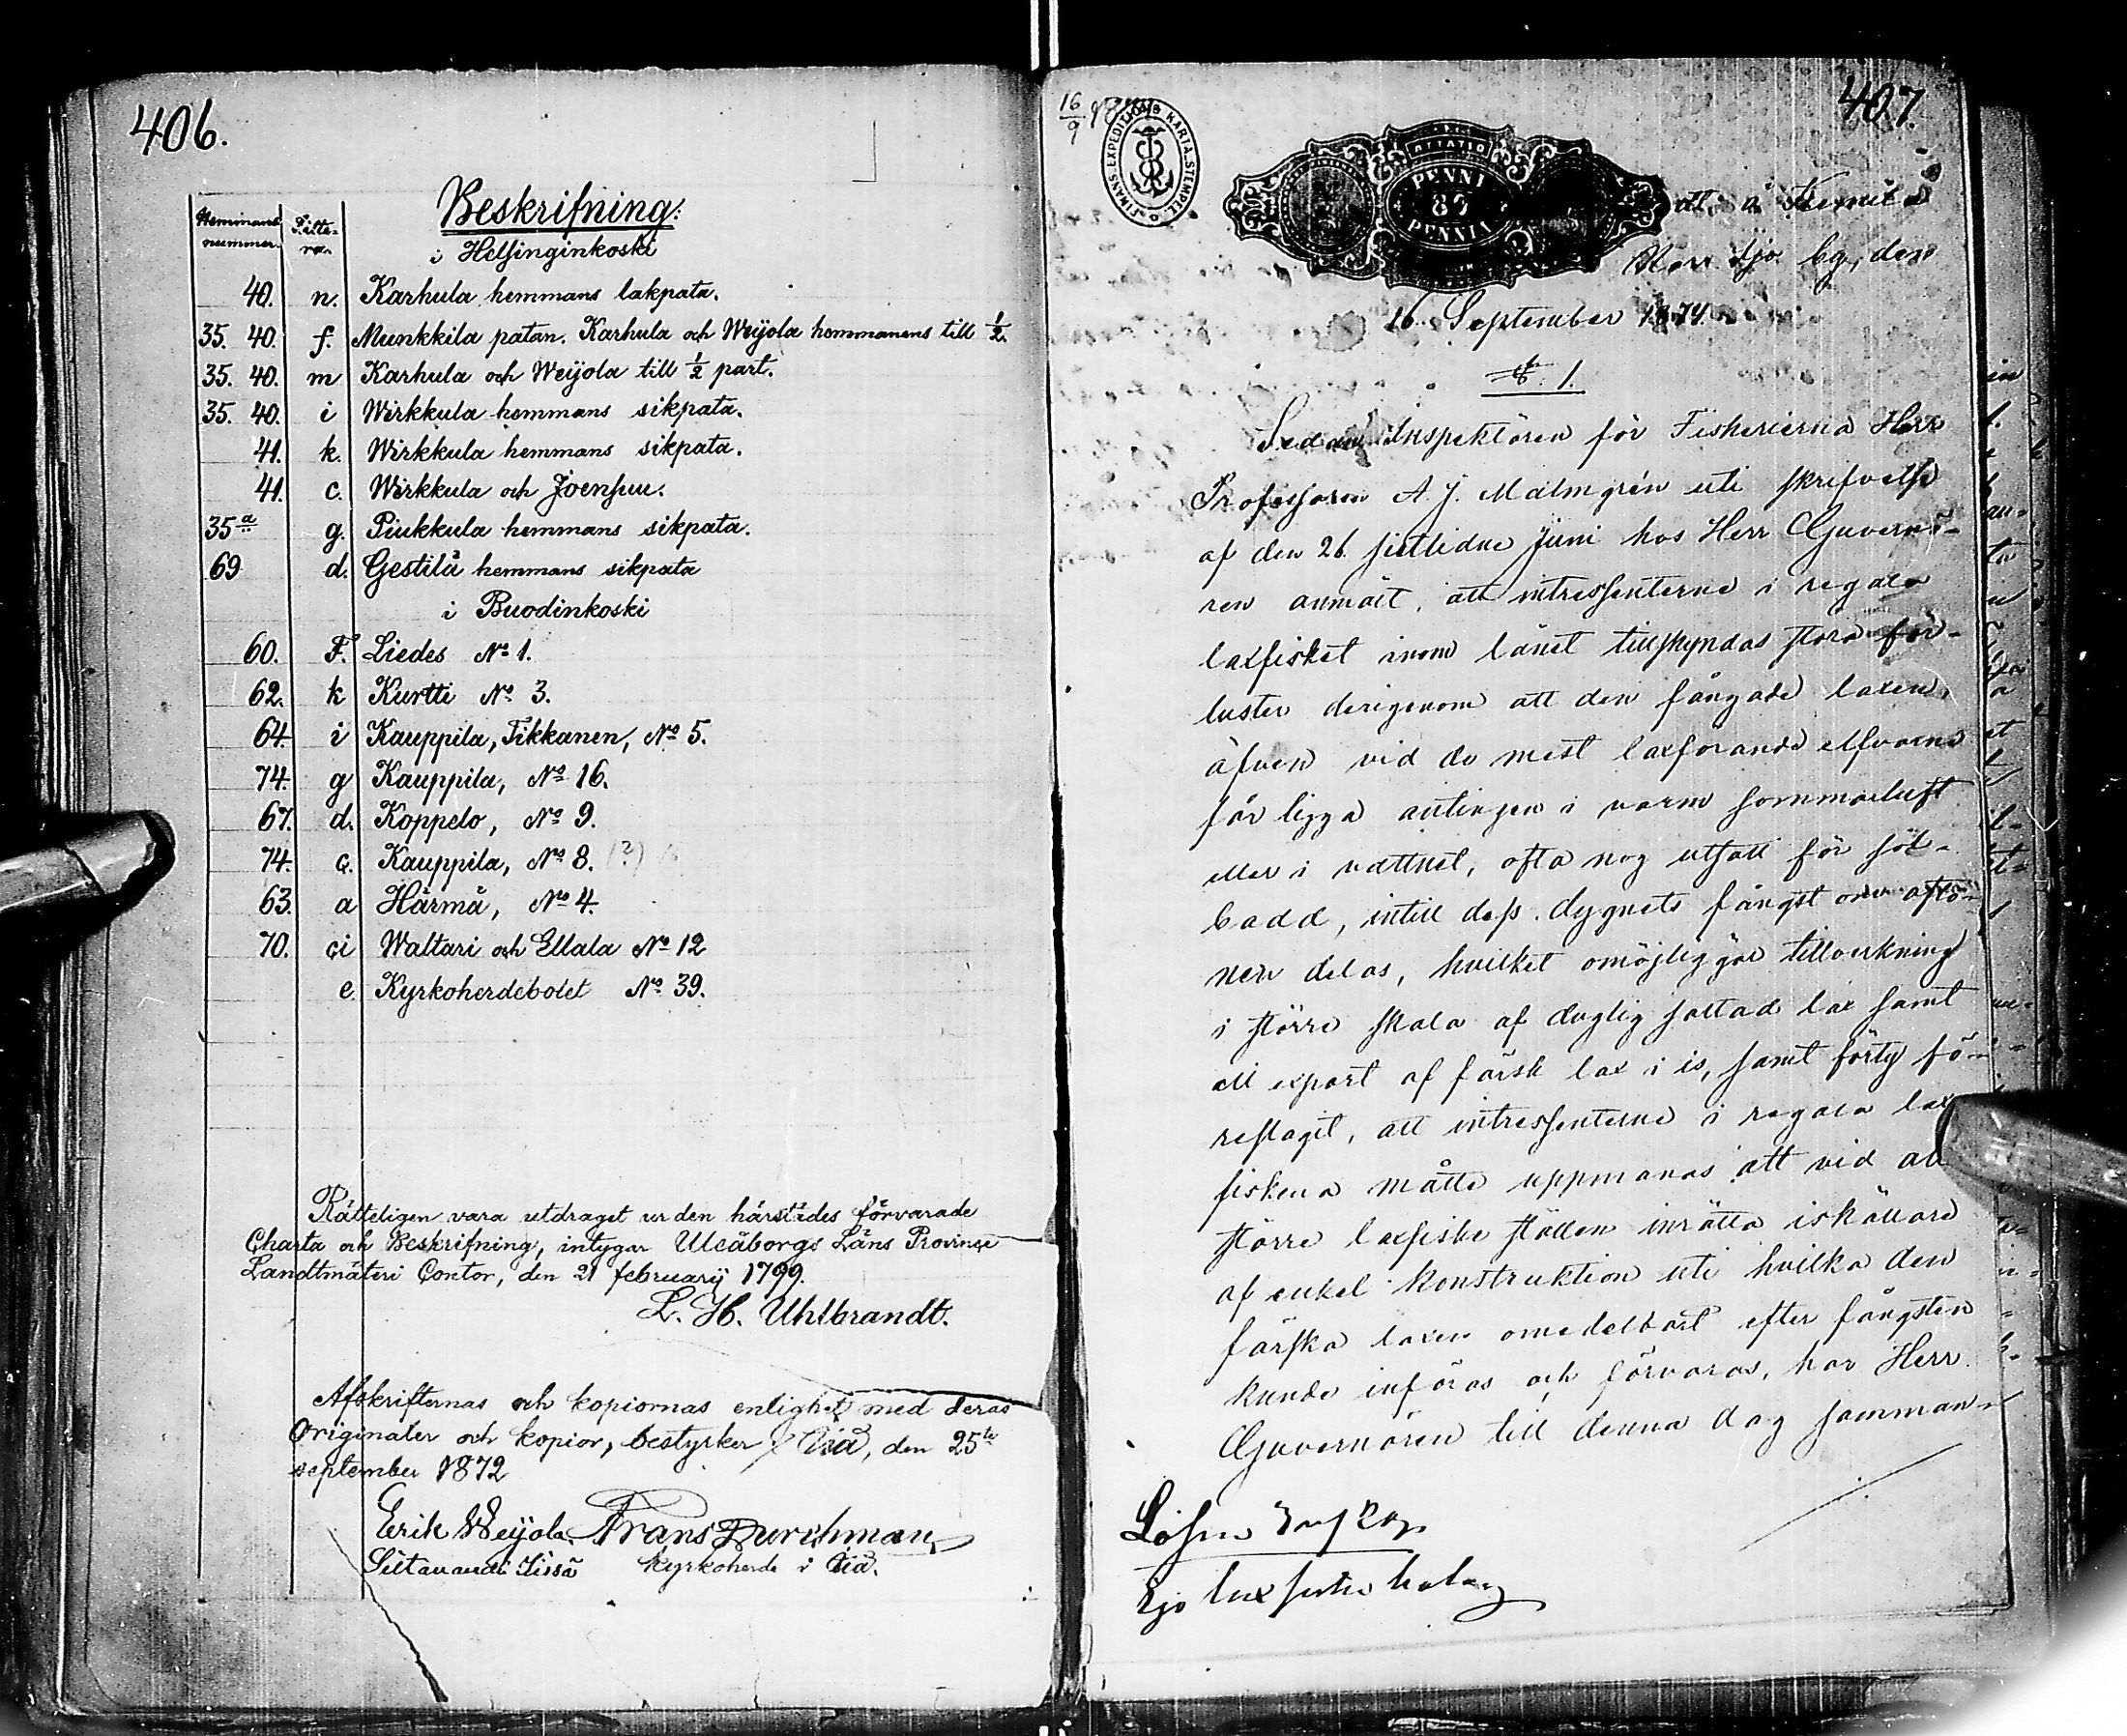 406.
Beskrifning:
Hemmans nummer. Littera.
i Helsinginkoski
40. n. Karhula hemmans lakpata.
35. 40. f. Munkkila patan. Karhula och Weijola hemmanens till 1/2.
35. 40. m Karhula och Weijola till 1/2 part.
35. 40. i Wirkkula hemmans sikpata.
41. k. Wirkkula hemmans sikpata.
41. c. Wirkkula och Joensuu.
35a g. Piukkula hemmans sikpata.
69 d. Gestilä hemmans sikpata
i Buodinkoski
60. F. Liedes No 1.
62. k Kurtti No 3.
64. i Kauppila, Tikkanen, No 5.
74. g Kauppila, No 16.
67. d. Koppelo, No 9.
74. c. Kauppila, No 8. (?)
63. a Härmä, No 4.
70. ci Waltari och Ellala No 12
e Kyrkoherdebolet No 39.
Rätteligen vara utdraget ur den härstädes förvarade
Charta och Beskrifning, intygar Uleåborgs Läns Provinse
Landtmäteri Contor, den 21 februarij 1799.
L. H. Uhlbrandt.
Afskrifternas och kopiornas enlighet med deras
Originaler och kopior, bestyrker Ijå, den 25te
september 1872
Erik Weijola. Frans Durchman
Siltavouti Iissä Kyrkoherde i Ijå.
407.
16/9
FINANS. EXPEDITIONS KARTA. STEMPEL.
PENNI
80
PENNIÄ
å Kemi å
den
16 September 1874.
§. 1.
Sedan Inspektören för Fiskerierna Herr
Professoren A. J. Malmgrén uti skrifvelse
af den 26 sistlidne Juni hos Herr Guvernö-
ren anmält, att intressenterne i regala
laxfisket inom länet tillskyndas stora för-
luster derigenom att den fångade laxen,
äfven vid de mest laxförande elfvarne
får ligga antingen i varm sommarluft
eller i vattnet, ofta nog utsatt för sol-
badd, intill dess dygnets fångst om afto-
nen delas, hvilket omöjliggör tillverkning
i större skala af duglig saltad lax samt
all export af färsk lax i is, samt förty fö-
reslagit, att intressenterne i regala lax
fiskena måtte uppmanas att vid all
större laxfiske ställen inrätta iskällare
af enkel konstruktion uti hvilka den
färska laxen omedelbart efter fångsten
kunde införas och förvaras, har Herr
Guvernören till denna dag samman-
Lösen
Ijo laxfiske bolag